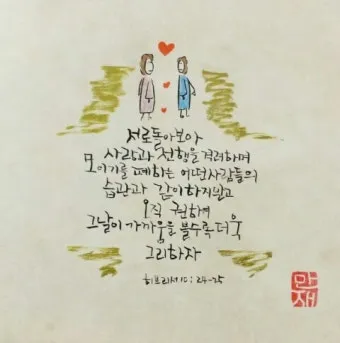 서로돌아보아
사랑과 선행을 격려하며
모이기를 폐하는 어떤사람들의
습관과 같이하지말고
오직 권하여
그날이 가까움을 볼수록 더욱
그리하자
히브리서 10: 24-25
만
재